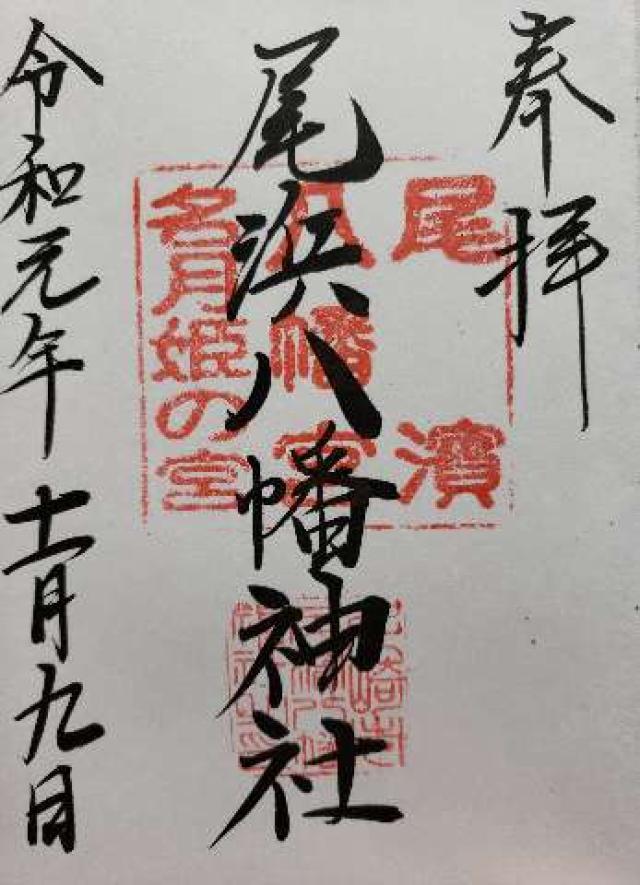 奉拝
尾浜八幡神社
令和元年十一月九日
尾濱
八幡宮
名月姫の宮